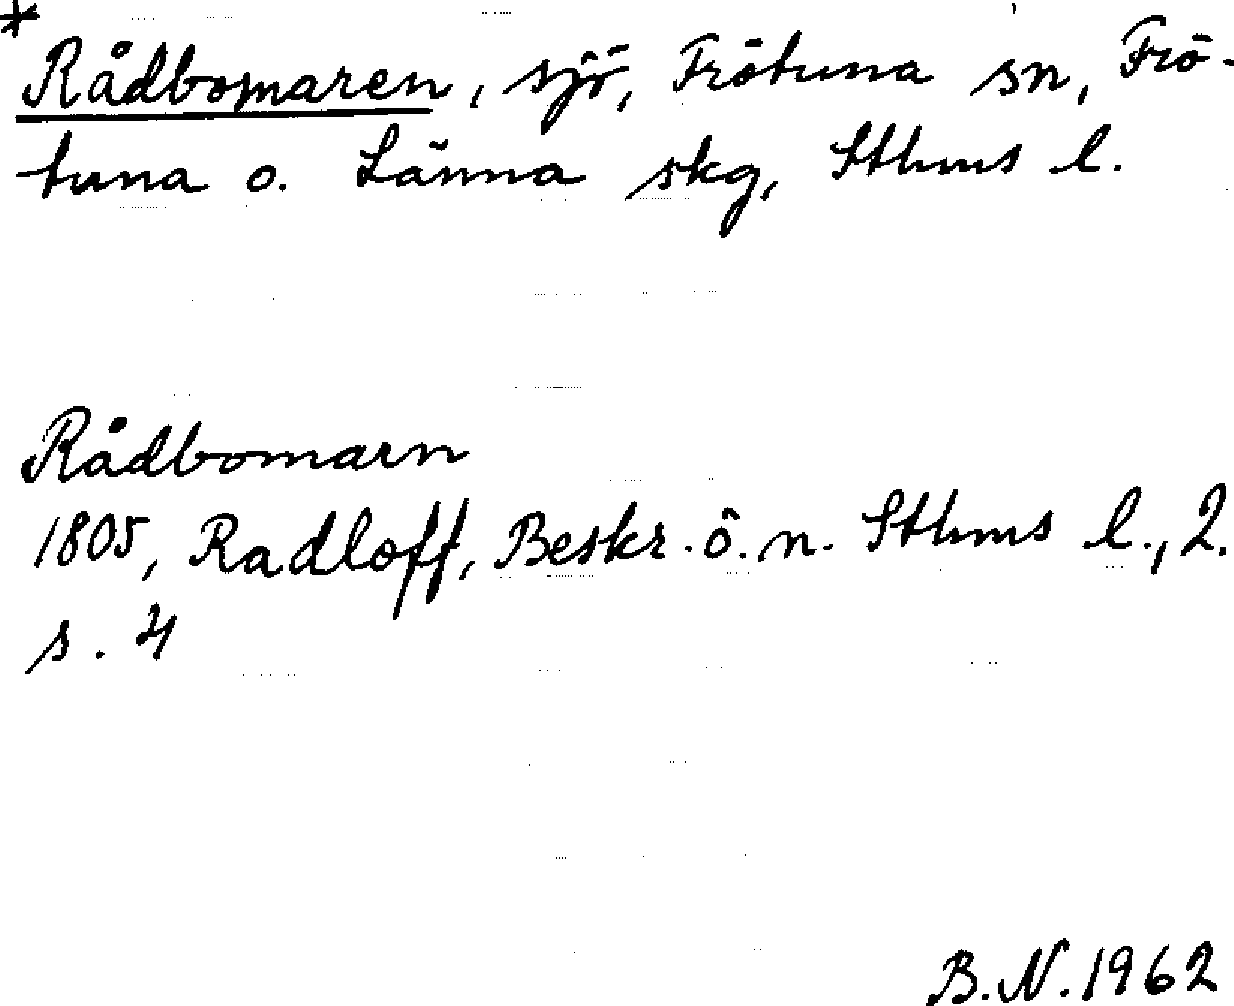 * Rådbomaren, sjö, Frötuna sn, Frö-
tuna o. Länna skg, Sthms l.
Rådbomarn
1805, Radloff, Beskr. ö. n. Sthms l., 2.
s. 4
B.N. 1962